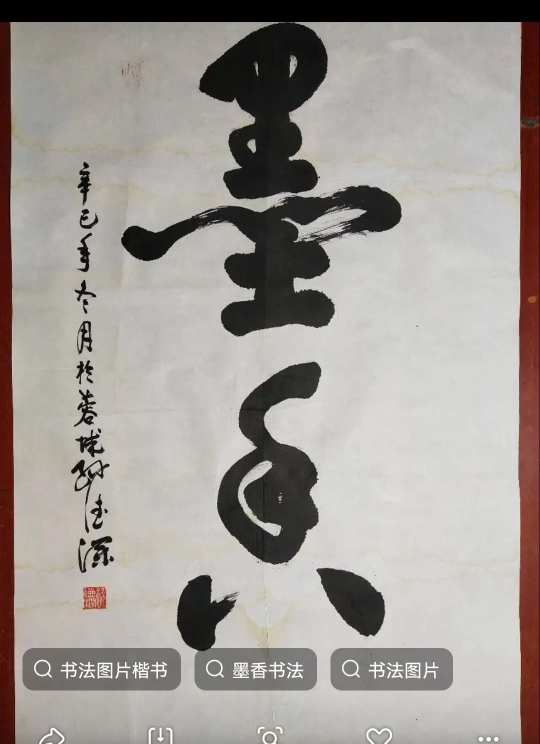 墨香
辛巳年冬月於蓉城
书法图片楷书
墨香书法
书法图片